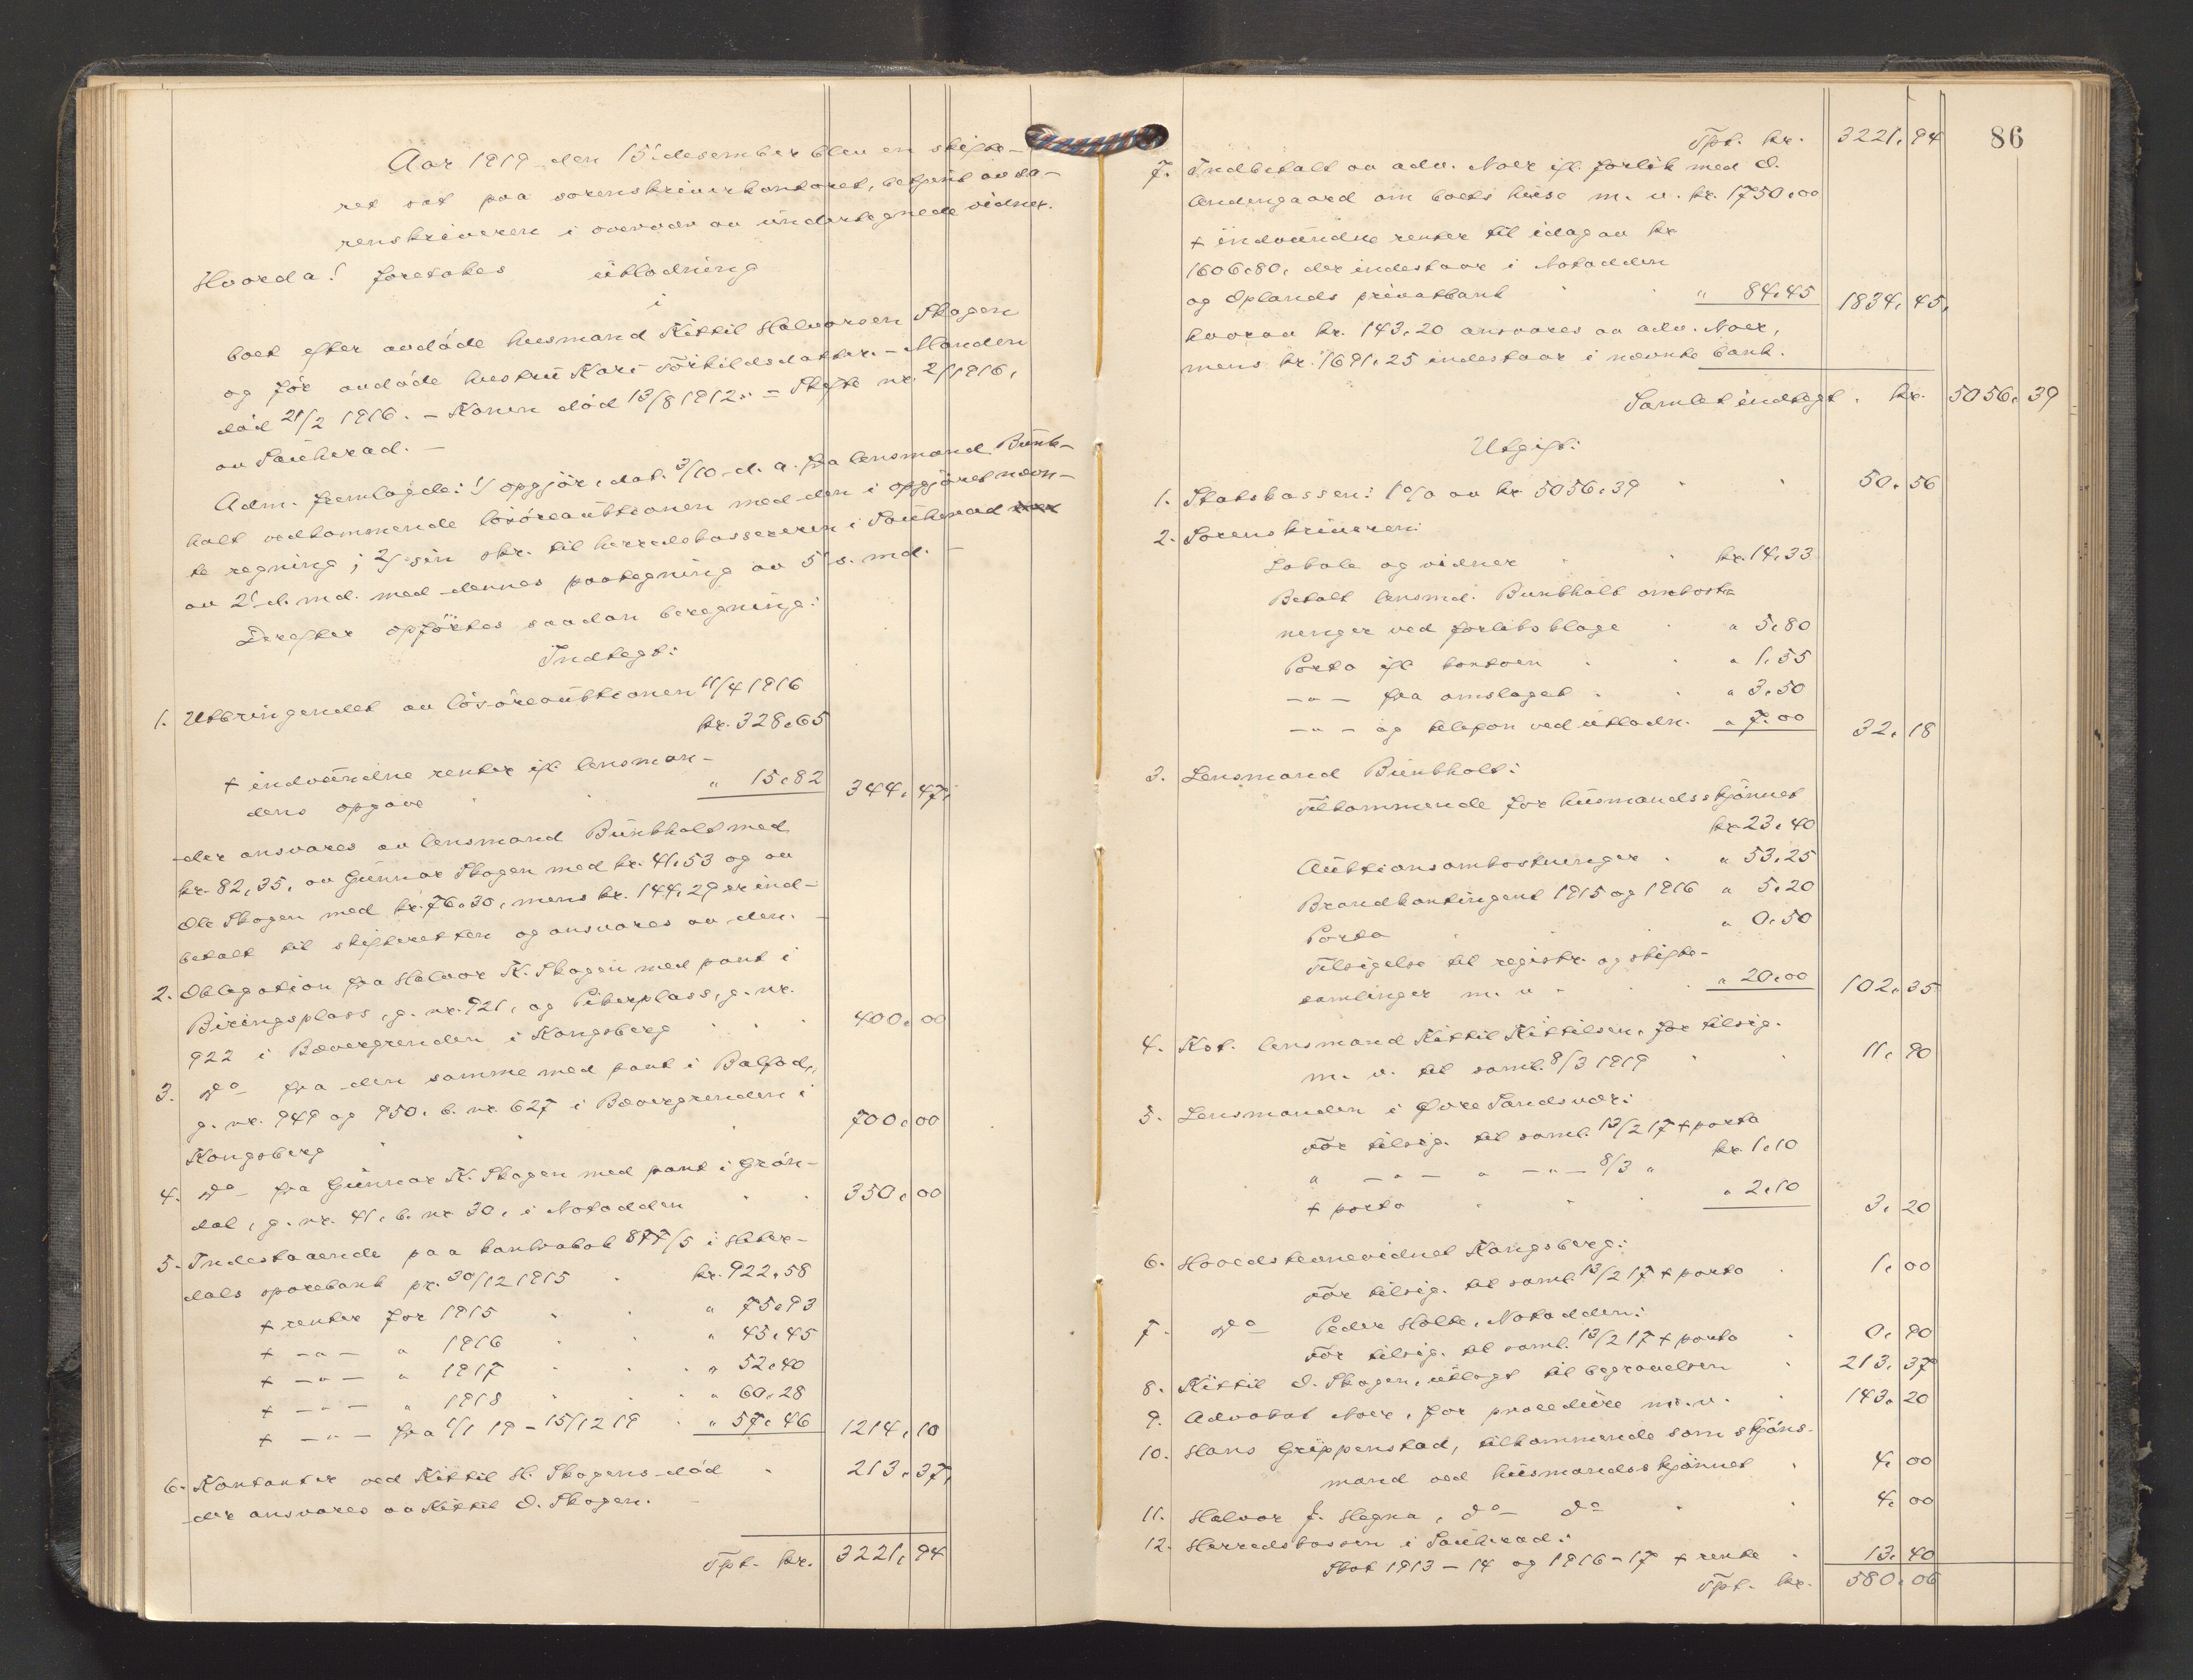 Aar 1919 den 15' desember blev en skifte-
ret sat paa sorenskriverkontoret, betjent av so-
renskriveren i overvær av undertegnede vidner.
Hvorda! foretokes utlodning
i
boet efter avdøde husmand Kittil Halvorsen Skogen
og før avdøde hustru Kari Torkildsdatter. - Manden
død 21/2 1916. - Konen død 13/8 1912. - Skifte nr. 2/1916,
av Sauherad. -
Adm. fremlagde: 1/ opgjør, dat. 3/10 d. a. fra lensmand Bunk-
holt vedkommende løsøreauktionen med den i opgjøret nævn-
te regning; 2/ sin skr. til herredskassereren i Sauherad
av 2' d. md. med dennes paategning av 5' s. md. -
Derefter opførtes saadan beregning:
Indtegt:
1. Utbringendet av løsøreauktionen 11/4 1916
kr. 328,65
+ indvundne renter ifl. lensman-
dens opgave " 15,82 344,47,
der ansvares av lensmand Bunkholt med
kr. 82,35, av Gunnar Skogen med kr. 41,53 og av
Ole Skogen med kr. 76,30, mens kr. 144,29 er ind-
betalt til skifteretten og ansvares av den. -
2. Obligation fra Halvor K. Skogen med pant i
Biringsplass, g. nr. 921, og Piberplass, g. nr.
922 i Bævergrenden i Kongsberg 400,00
3. Do fra den samme med pant i Balfod,
g. nr. 949 og 950, b. nr. 627 i Bævergrenden i
Kongsberg 700,00
4. Do fra Gunnar K. Skogen med pant i Grøn-
dal, g. nr. 41, b. nr. 30, i Notodden 350,00
5. Indestaaende paa bankvabok 877/5 i Hiter-
dals sparebank pr. 30/12 1915 kr. 922,58
+ renter for 1915 " 75,93
+ -"- " 1916 " 45,45
+ -"- " 1917 " 52,40
+ -"- " 1918 " 60,28
+ -"- fra 1/1 19 - 15/12 19 " 57,46 1214,10
6. Kontanter ved Kittil H. Skogens død 213,37,
der ansvares av Kittil O. Skogen.
Tpt. kr. 3221,94
86
Tpt. kr. 3221,94
7. Indbetalt av adv. Noer ifl. forlik med O.
Andengaard om boets huse m. v. kr. 1750,00
+ indvundne renter til idag av kr
1606,80, der indestaar i Notodden
og Oplands privatbank " 84,45 1834,45,
hvorav kr. 143,20 ansvares av adv. Noer,
mens kr. 1691,25 indestaar i nævnte bank.
Samlet indtegt. kr. 5056,39
Utgift:
1. Statskassen: 1% av kr. 5056,39 50,56
2. Sorenskriveren:
Lokale og vidner kr. 14,33
Betalt lensmd. Bunkholt omkost-
ninger ved forliksklage " 5,80
Porto ifl. kontoen " 1,55
-"- fra omslaget " 3,50
-"- og telefon ved utlodn. " 7,00 32,18
3. Lensmand Bunkholt:
Tilkommende for husmandsskjønnet
kr. 23,40
Auktionsomkostninger " 53,25
Brandkontingent 1915 og 1916 " 5,20
Porto " 0,50
Tilsigelse til registr. og skifte-
samlinger m. v. " 20,00 102,35
4. Kst. lensmand Kittil Kittilsen, for tilsig.
m. v. til saml. 8/3 1919 11,90
5. Lensmanden i Øvre Sandsvær:
For tilsig. til saml. 13/2 17 + porto
kr. 1,10
" -"- " -"- 8/3 "
+ porto " 2,10 3,20
6. Hovedstevnevidnet Kongsberg:
For tilsig. til saml. 13/2 17 + porto 1,00
7. Do Peder Holte, Notodden:
For tilsig. til saml. 13/2 17 + porto 0,90
8. Kittil O. Skogen, utlagt til begravelsen 213,37
9. Advokat Noer, for procedure m. v. 143,20
10. Hans Grippenstad, tilkommende som skjøns-
mand ved husmandsskjønnet 4,00
11. Halvor J. Hegna, do do 4,00
12. Herredskassen i Sauherad:
Skat 1913-14 og 1916-17 + rente 13,40
Tpt. kr. 580,06